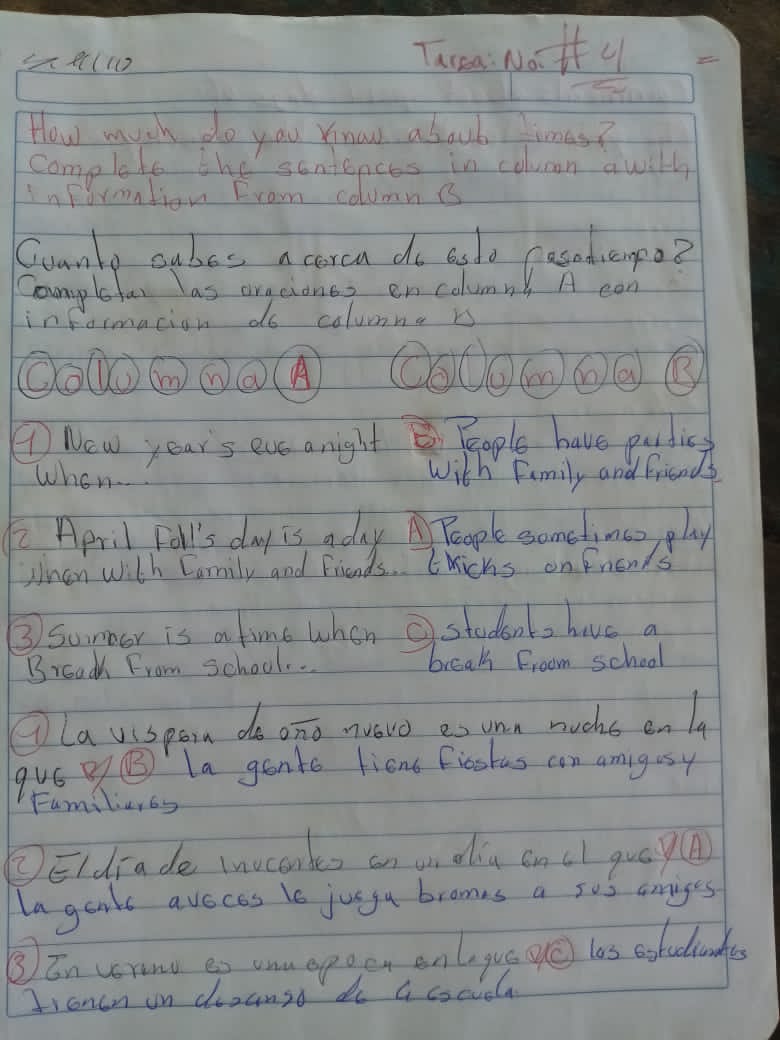 Tarea: No. #4
How much do you Know about times?
Complete the sentences in column a with
information From column B
Cuanto sabes acerca de esto Pasatiempo?
Completar las oraciones en columna A con
informacion de columna B
Columna A Columna B
1 New year's eve a night B People have parties
When... With Family and Friends
2 April Foll's day is a day A People sometimes play
When With Family and Friends... tricks on friends
3 Summer is a time When C students have a
Breadk From school... break Froom school
1 La vispera de año nuevo es una noche en la
que B La gente tiene Fiestas con amigos y
Familiares
2 El día de inocentes en un día en el que A
la gente aveces le juega bromas a sus amigos
3 En verano es una epoca en la que C los estudiantes
tienen un descanso de la escuela